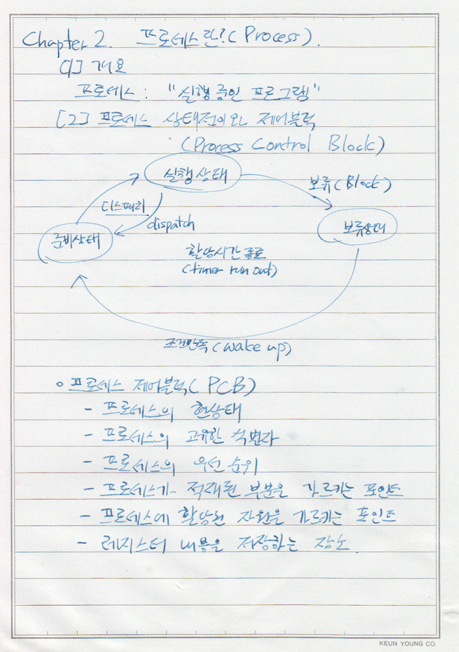 Chapter 2. 프로세스란?(Process).
[1] 개요
프로세스 : "실행중인 프로그램"
[2] 프로세스 상태전이와 제어블럭
(Process Control Block)
실행상태
보류(Block)
디스패치
dispatch
준비상태
보류상태
할당시간 종료
(timer run out)
조건만족(wake up)
프로세스 제어블럭(PCB)
- 프로세스의 현상태
- 프로세스의 고유한 식별자
- 프로세스의 우선 순위
- 프로세스가 적재된 부분을 가르키는 포인트
- 프로세스에 할당된 자원을 가르키는 포인트
- 레지스터 내용을 저장하는 장소.
KEUN YOUNG CO.